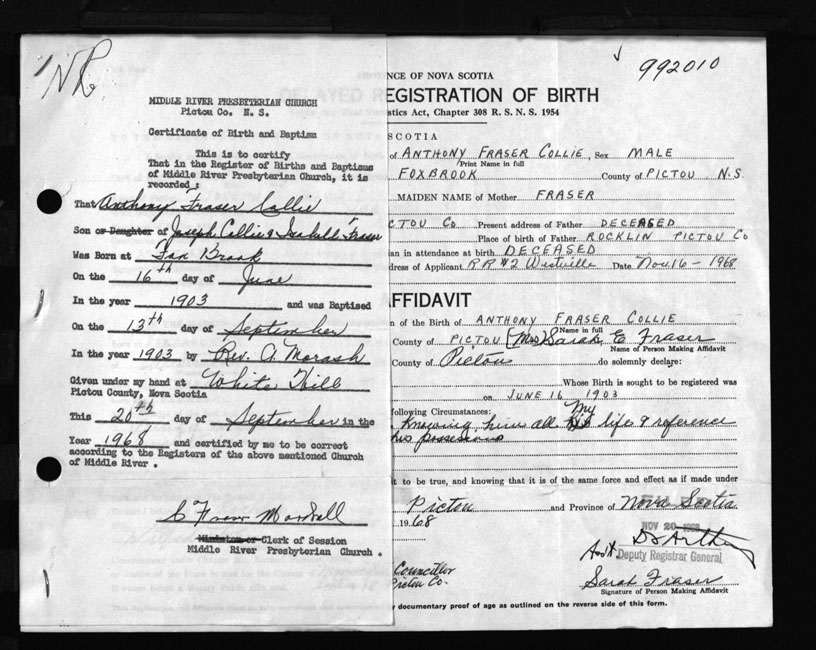 NR
MIDDLE RIVER PRESBYTERIAN CHURCH
Pictou Co. N. S.
Certificate of Birth and Baptism
This is to certify
That in the Register of Births and Baptisms
of Middle River Presbyterian Church, it is
recorded ;
That Anthony Fraser Collie
Son or Daughter of Joseph Collie & Isabell Fraser
Was Born at Fox Brook
On the 16th day of June
In the year 1903 and was Baptised
On the 13th day of September
In the year 1903 by Rev. A. Morash
Given under my hand at White Hill
Pictou County, Nova Scotia
This 20th day of September in the
Year 1968 and certified by me to be correct
according to the Registers of the above mentioned Church
of Middle River .
Marshall
Minister or Clerk of Session
Middle River Presbyterian Church .
992010
NCE OF NOVA SCOTIA
DELAYED REGISTRATION OF BIRTH
stics Act, Chapter 308 R. S. N. S. 1954
SCOTIA
of ANTHONY FRASER COLLIE, Sex MALE
Print Name in full
FOXBROOK County of PICTOU N.S.
MAIDEN NAME of Mother FRASER
CTOU CO Present address of Father DECEASED
Place of birth of Father ROCKLIN PICTOU CO
an in attendance at birth DECEASED
dress of Applicant RR#2 Westville Date Nov. 16 - 1968
AFFIDAVIT
n of the Birth of ANTHONY FRASER COLLIE
Name in full
County of PICTOU (Mrs) Sarah E Fraser
Name of Person Making Affidavit
County of Pictou do solemnly declare:
Whose Birth is sought to be registered was
on JUNE 16 1903
following Circumstances:
knowing him all his My life & reference
his possessions
t to be true, and knowing that it is of the same force and effect as if made under
Pictou and Province of Nova Scotia
1968
NOV 20 1968
Deputy Registrar General
Councillor
Pictou Co.
Sarah Fraser
Signature of Person Making Affidavit
documentary proof of age as outlined on the reverse side of this form.